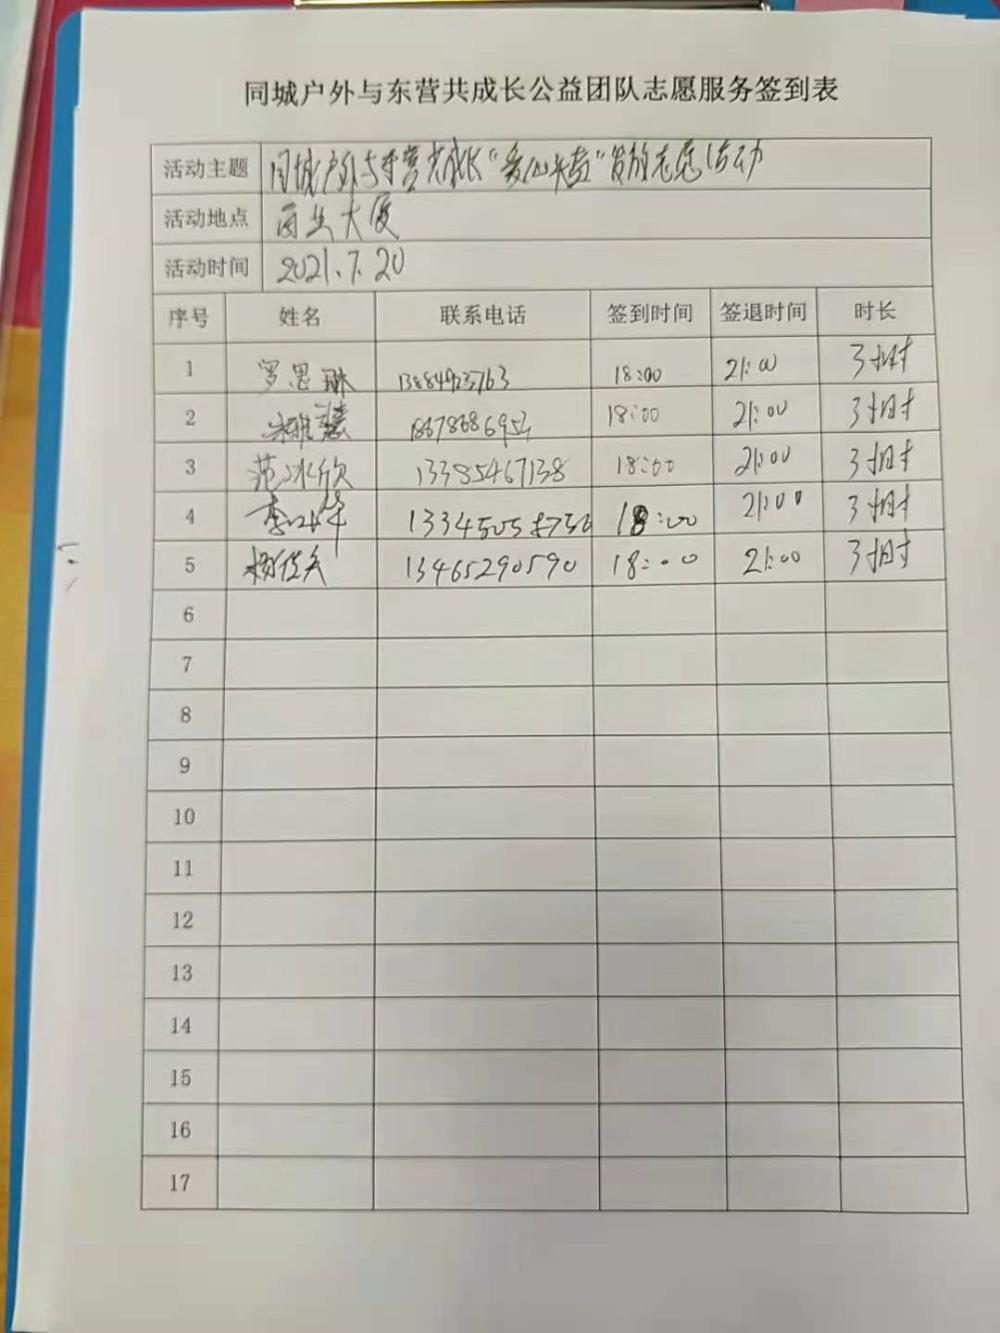 同城户外与东营共成长公益团队志愿服务签到表
活动主题 同城户外与东营共成长“爱心头套”发放志愿活动
活动地点 商业大厦
活动时间 2021.7.20
序号 姓名 联系电话 签到时间 签退时间 时长
1 罗思琳 13884923763 18:00 21:00 3小时
2 18678686953 18:00 21:00 3小时
3 范冰欣 13385467138 18:00 21:00 3小时
4 18:00 21:00 3小时
5 13465290590 18:00 21:00 3小时
6
7
8
9
10
11
12
13
14
15
16
17